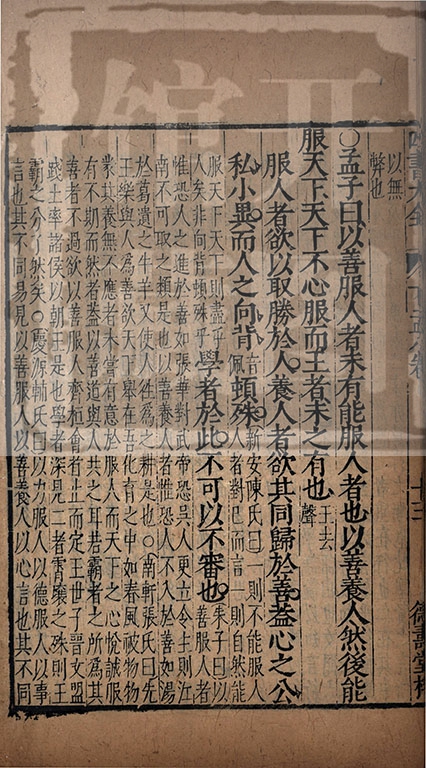 四書大全
下孟八卷
十三
德壽堂梓
以無
弊也
○孟子曰以善服人者未有能服人者也以善養人然後能
服天下天下不心服而王者未之有也王去聲
服人者欲以取勝於人養人者欲其同歸於善蓋心之公
私小異而人之向背音佩頓殊新安陳氏曰一則不能服人
人者對己而言二則自然能
服天下天下則盡乎
人矣非向背頓殊乎
學者於此不可以不審也朱子曰以
善服人者
惟恐人之進於善如張華對武帝恐吳人更立令主則江
南不可取之類是也以善養人者惟恐人不入於善如湯
於葛遺之牛羊又使人往為之耕是也○南軒張氏曰先
王樂與人為善欲天下舉在吾化育之中如春風被物物
衆共養無不應者未嘗有意於服人而天下之心悅誠服
有不期而然者蓋以善道與人共之耳若霸者之所為其
善者不過欲以善服人齊桓會首止而定王世子晉文盟
踐土率諸侯以朝王是也學者深見二者霄壤之殊則王
霸之分了然矣○慶源輔氏曰以力服人以德服人以事
言也其不同易見以善服人以善養人以心言也其不同